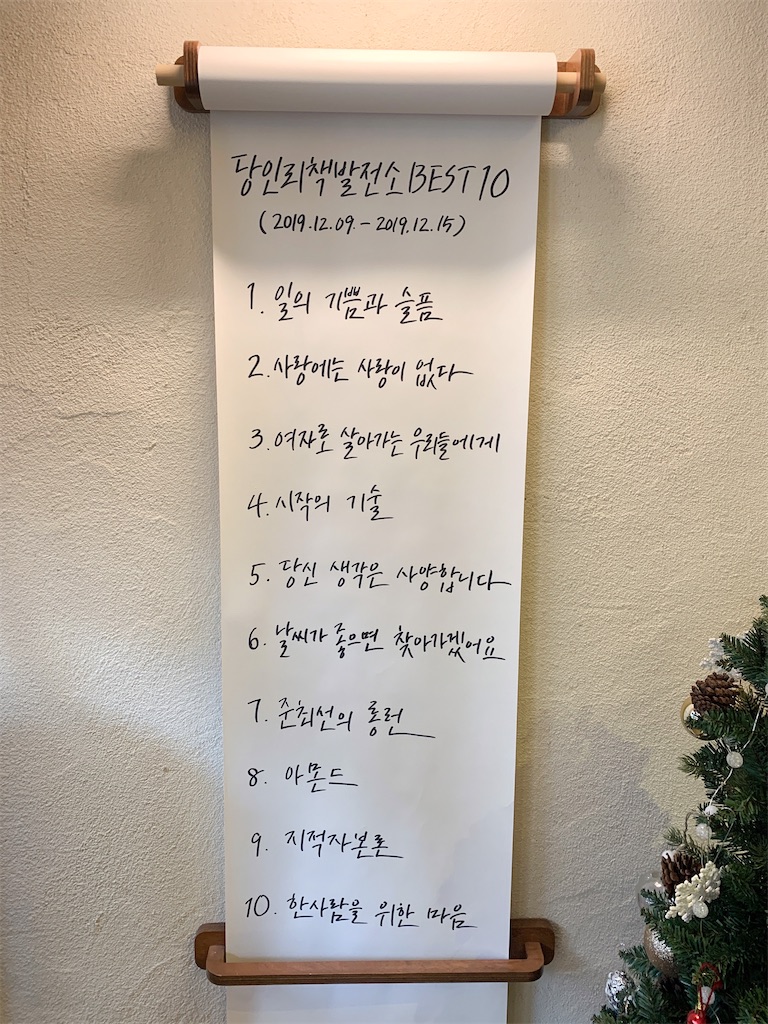 당인리책발전소 BEST 10
(2019.12.09. - 2019.12.15)
1. 일의 기쁨과 슬픔
2. 사랑에는 사랑이 없다
3. 여자로 살아가는 우리들에게
4. 시작의 기술
5. 당신 생각은 사양합니다
6. 날씨가 좋으면 찾아가겠어요
7. 준최선의 롱런
8. 아몬드
9. 지적자본론
10. 한사람을 위한 마음